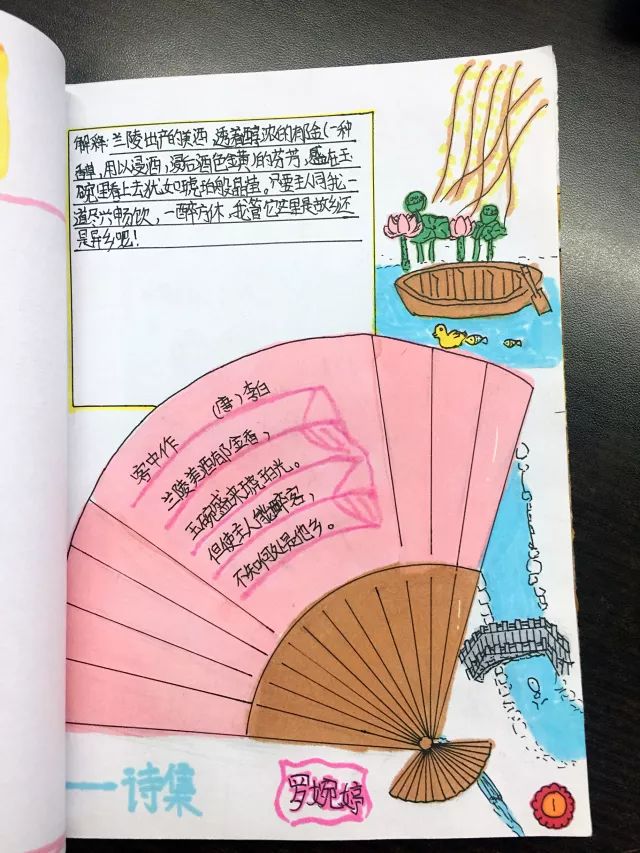 解释:兰陵出产的美酒,透着醇浓的郁金(一种
香草,用以浸酒,浸后酒色金黄)的芬芳,盛在玉
碗里看上去犹如琥珀般晶莹。只要主人同我一
道尽兴畅饮,一醉方休,我管它这里是故乡还
是异乡呢!
客中作
(唐)李白
兰陵美酒郁金香,
玉碗盛来琥珀光。
但使主人能醉客,
不知何处是他乡。
一诗集
罗婉婷
1